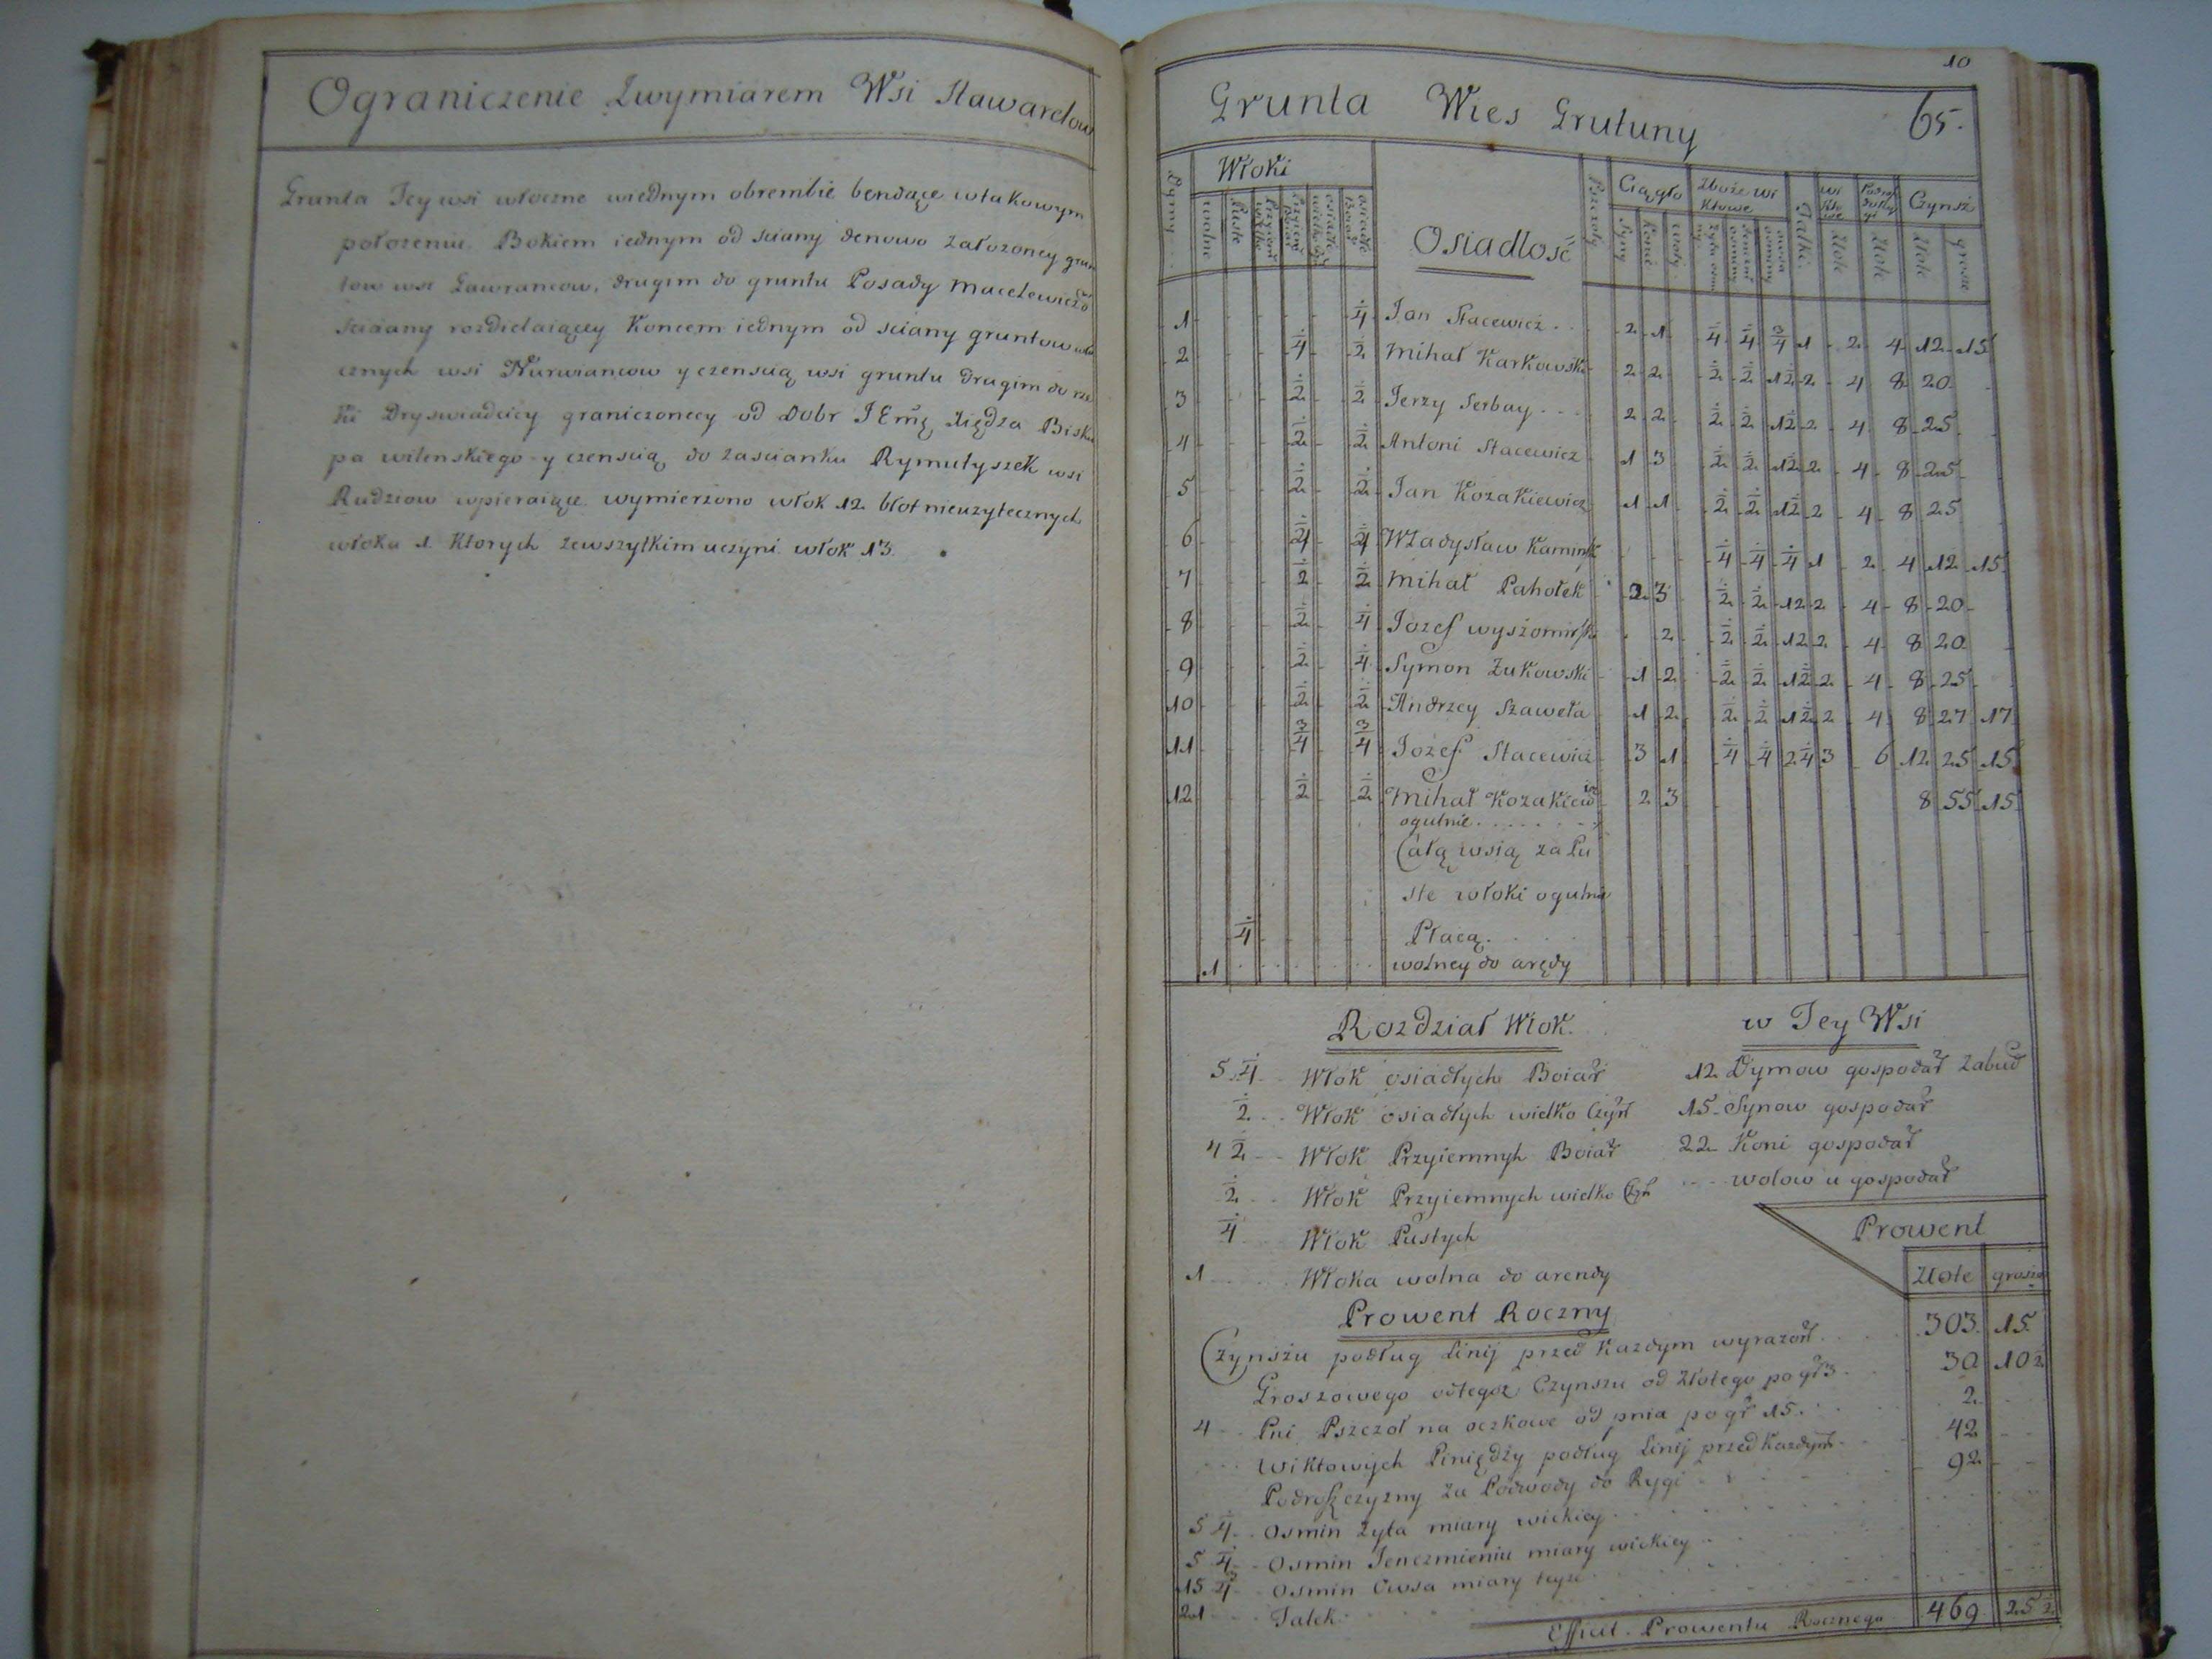 Ograniczenie Zwymiarem Wsi Stawardow
Grunta Tey wsi włoczne wiednym obrembie bendące wtakowym
położeniu. Bokiem iednym od sciany denowo założoney grun
tow wsi Ławrancow, drugim do gruntu Posady Macelewiczo
sciany rozdielaiącey Koncem iednym od sciany gruntow wło
cznych wsi Nurwiancow y czenscią wsi gruntu drugim do rze
ki Dryswiadcicy graniczonecy od Dobr JEmę Xiędza Bisku
pa wilenskiego y czenscią do zascianku Rymutyszek wsi
Rudziow wpieraiące wymierzono włok 12 błot nieużytecznych
włoka 1 Ktorych zewszytkim uczyni włok 13.
10
Grunta Wies Grutuny 65.
Dymy Włoki Osiadłosć Pszczoły Ciągło Zboże wi ktowe Talki wi kto we Czynsz
wolne Puste Syny Konie woły Złote Złote Złote grosze
1 ¼ Jan Stacewicz 2 1 ¼ ¼ ¾ 1 2 4 12 15
2 ¼ ½ Mihał Karkowski 2 2 ½ ½ 1½ 2 4 8 20
3 ½ ½ Jerzy Serbay 2 2 ½ ½ 1½ 2 4 8 25
4 ½ ½ Antoni Stacewicz 1 3 ½ ½ 1½ 2 4 8 25
5 ½ ½ Jan Kozakiewicz 1 1 ½ ½ 1½ 2 4 8 25
6 ¼ ¼ Władysław Kaminsk ¼ ¼ ¼ 1 2 4 12 15
7 ½ ½ Mihał Pahołek 2 3 ½ ½ 1½ 2 4 8 20
8 ½ ¼ Jozef wyszomirsk 2 ½ ½ 1½ 2 4 8 20
9 ½ ¼ Symon Zukowski 1 2 ½ ½ 1½ 2 4 8 25
10 ½ ½ Andrzey Szaweła 1 2 ½ ½ 1½ 2 4 8 27 17
11 ¾ ¾ Jozef Stacewicz 3 1 ¼ ¼ 2¼ 3 6 12 25 15
12 ½ ½ Mihał Kozakiewicz 2 3 8 55 15
ogulnie
Całą wsią za Pu
ste włoki ogulnie
¼ Płacą
1 wolney do arędy
Rozdział Włok. w Tey Wsi
5 ¼ Włok osiadłych Boiar̃ 12 Dymow gospodar̃ Zabud
½ Włok osiadłych wielko Czyn̄ 15 Synow gospodar̃
4 ½ Włok Przyiemnyh Boiar̃ 22 Koni gospodar̃
½ Włok Przyiemnych wielko Czyn̄ wolow u gospodar̃
¼ Włok Pustych
1 Włoka wolna do arendy
Prowent
Złote grosze
Prowent Roczny
Czynszu podług Linij przed Kazdym wyrazon̄ 303 15
Groszowego odtegoż Czynszu od Złotego po gr̃ 3 30 10½
4 Pni Pszczoł na oczkowe od pnia po gr̃ 15. 2
Wiktowych Piniędzy podług Linij przed Kazdym 42
Podrożczyzny Za Podwody do Rygi 92
5 ¼ Osmin Żyta miary wickiey
5 ¼ Osmin Jenczmieniu miary wickiey
15 ¾ Osmin Owsa miary teyże
21 Talek
Efficit Prowentu Rocznego 469 25½